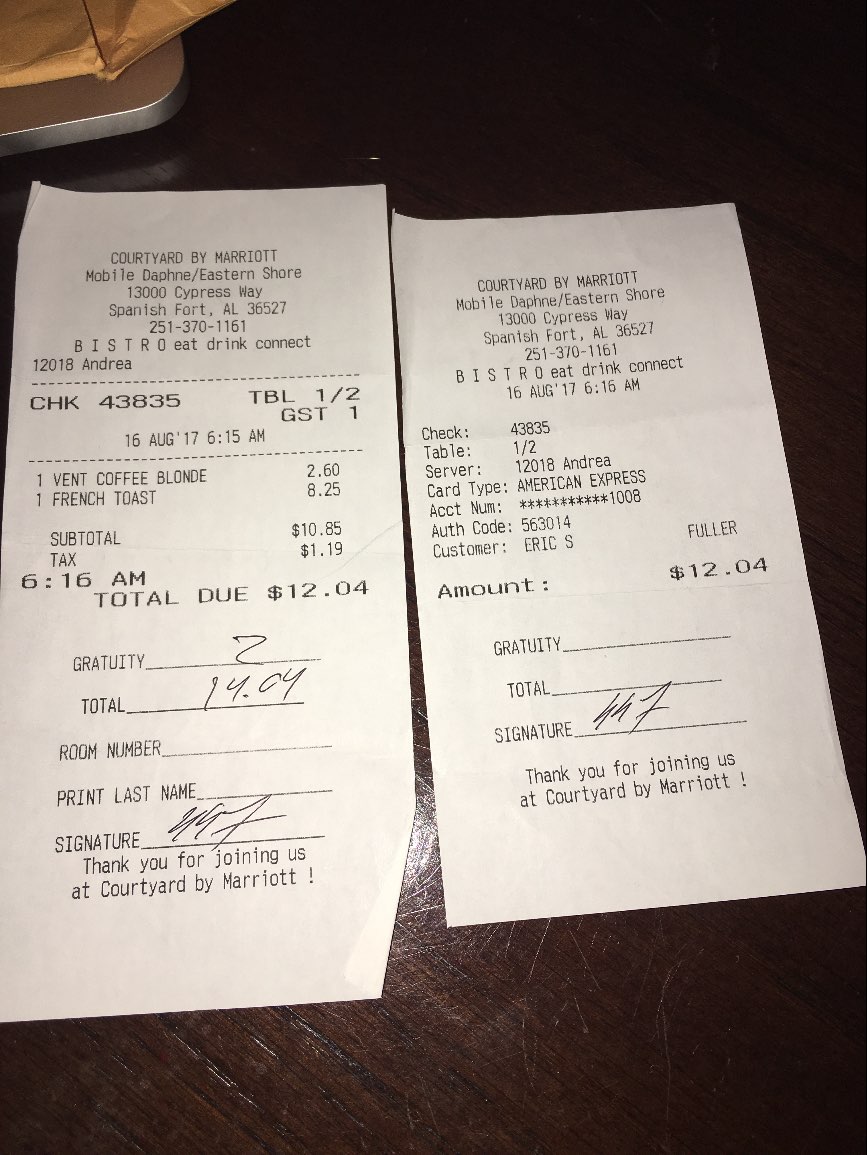 COURTYARD BY MARRIOTT
Mobile Daphne/Eastern Shore
13000 Cypress Way
Spanish Fort, AL 36527
251-370-1161
B I S T R O eat drink connect
12018 Andrea
CHK 43835 TBL 1/2
GST 1
16 AUG'17 6:15 AM
1 VENT COFFEE BLONDE 2.60
1 FRENCH TOAST 8.25
SUBTOTAL $10.85
TAX $1.19
6:16 AM
TOTAL DUE $12.04
GRATUITY 2
TOTAL 14.04
ROOM NUMBER
PRINT LAST NAME
SIGNATURE
Thank you for joining us
at Courtyard by Marriott !
COURTYARD BY MARRIOTT
Mobile Daphne/Eastern Shore
13000 Cypress Way
Spanish Fort, AL 36527
251-370-1161
B I S T R O eat drink connect
16 AUG'17 6:16 AM
Check: 43835
Table: 1/2
Server: 12018 Andrea
Card Type: AMERICAN EXPRESS
Acct Num: ***********1008
Auth Code: 563014
Customer: ERIC S FULLER
Amount: $12.04
GRATUITY
TOTAL
SIGNATURE
Thank you for joining us
at Courtyard by Marriott !